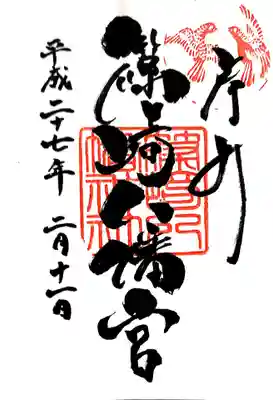 奉拝
篠崎八幡宮
平成二十七年 二月十一日